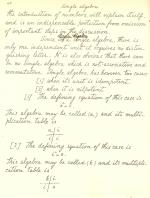 Single algebra
The introduction of numbers will explain itself
and is an indispensable protection from omission
of important steps in the discussion.
Since in a single algebra, there is
only one independent unit it requires no distin-
guishing letter. It is also obvious that there can
be no single algebra which is not associative and
commutative. Single algebra has however two cases
[1] when its unit is idempotent
[2] when it is nilpotent.
[1] The defining equation of this case is
i² = i
This algebra may be called (a₁) and its multi-
plication table is
[2] The defining equation of this case is
i² = 0
This algebra may be called (b₁) and its multipli-
cation table is